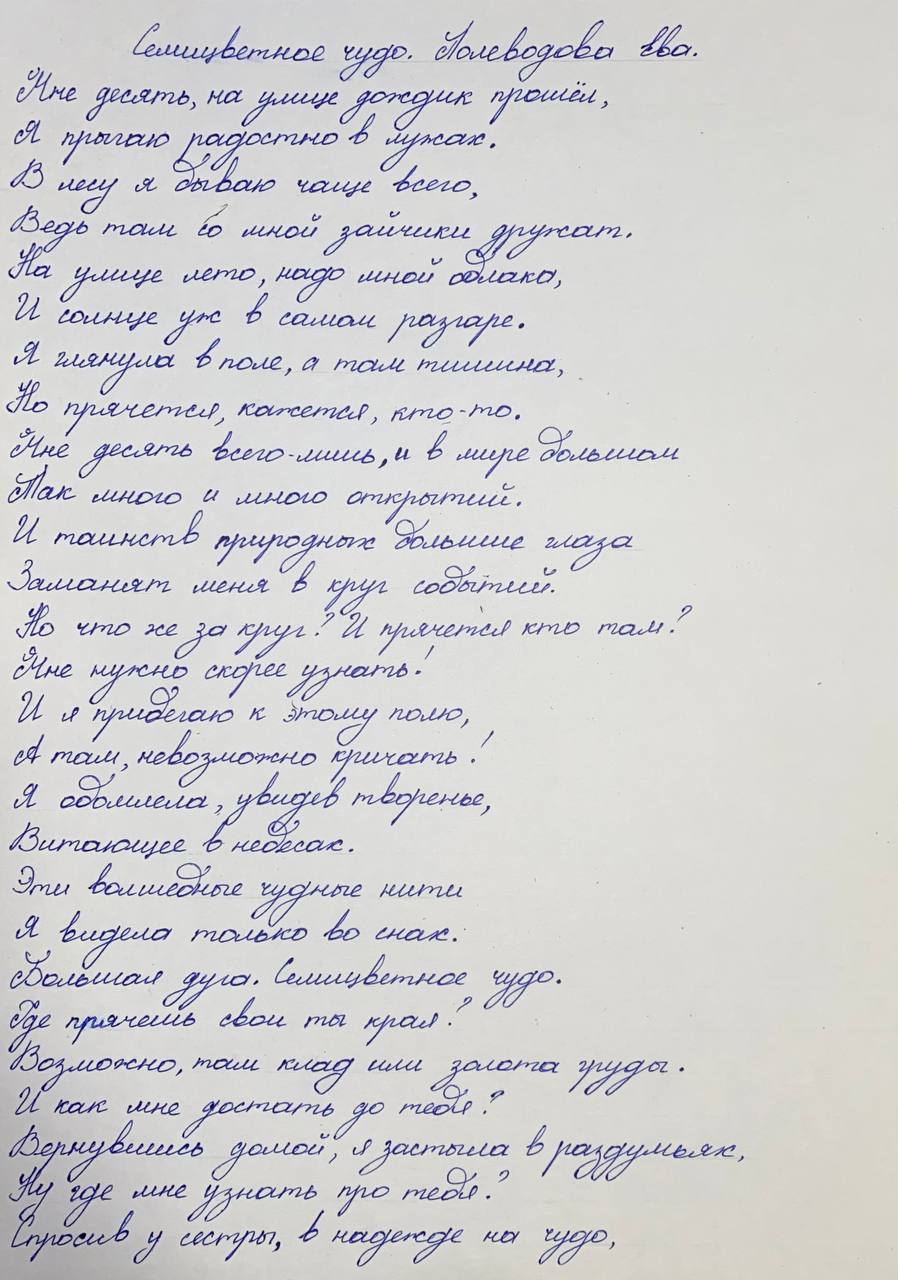 Семицветное чудо. Полеводова Ева.
Мне десять, на улице дождик прошёл,
Я прыгаю радостно в лужах.
В лесу я бываю чаще всего,
Ведь там со мной зайчики дружат.
На улице лето, надо мной облака,
И солнце уж в самом разгаре.
Я глянула в поле, а там тишина,
Но прячется, кажется, кто-то.
Мне десять всего-лишь, и в мире большом
Так много и много открытий.
И таинств природных большие глаза
Заманят меня в круг событий.
Но что же за круг? И прячется кто там?
Мне нужно скорее узнать!
И я прибегаю к этому полю,
А там, невозможно кричать!
Я обомлела, увидев творенье,
Витающее в небесах.
Эти волшебные чудные нити
Я видела только во снах.
Большая дуга. Семицветное чудо.
Где прячешь свои ты края?
Возможно, там клад или золота груды.
И как мне достать до тебя?
Вернувшись домой, я застыла в раздумьях,
Ну где мне узнать про тебя?
Спросив у сестры, в надежде на чудо,